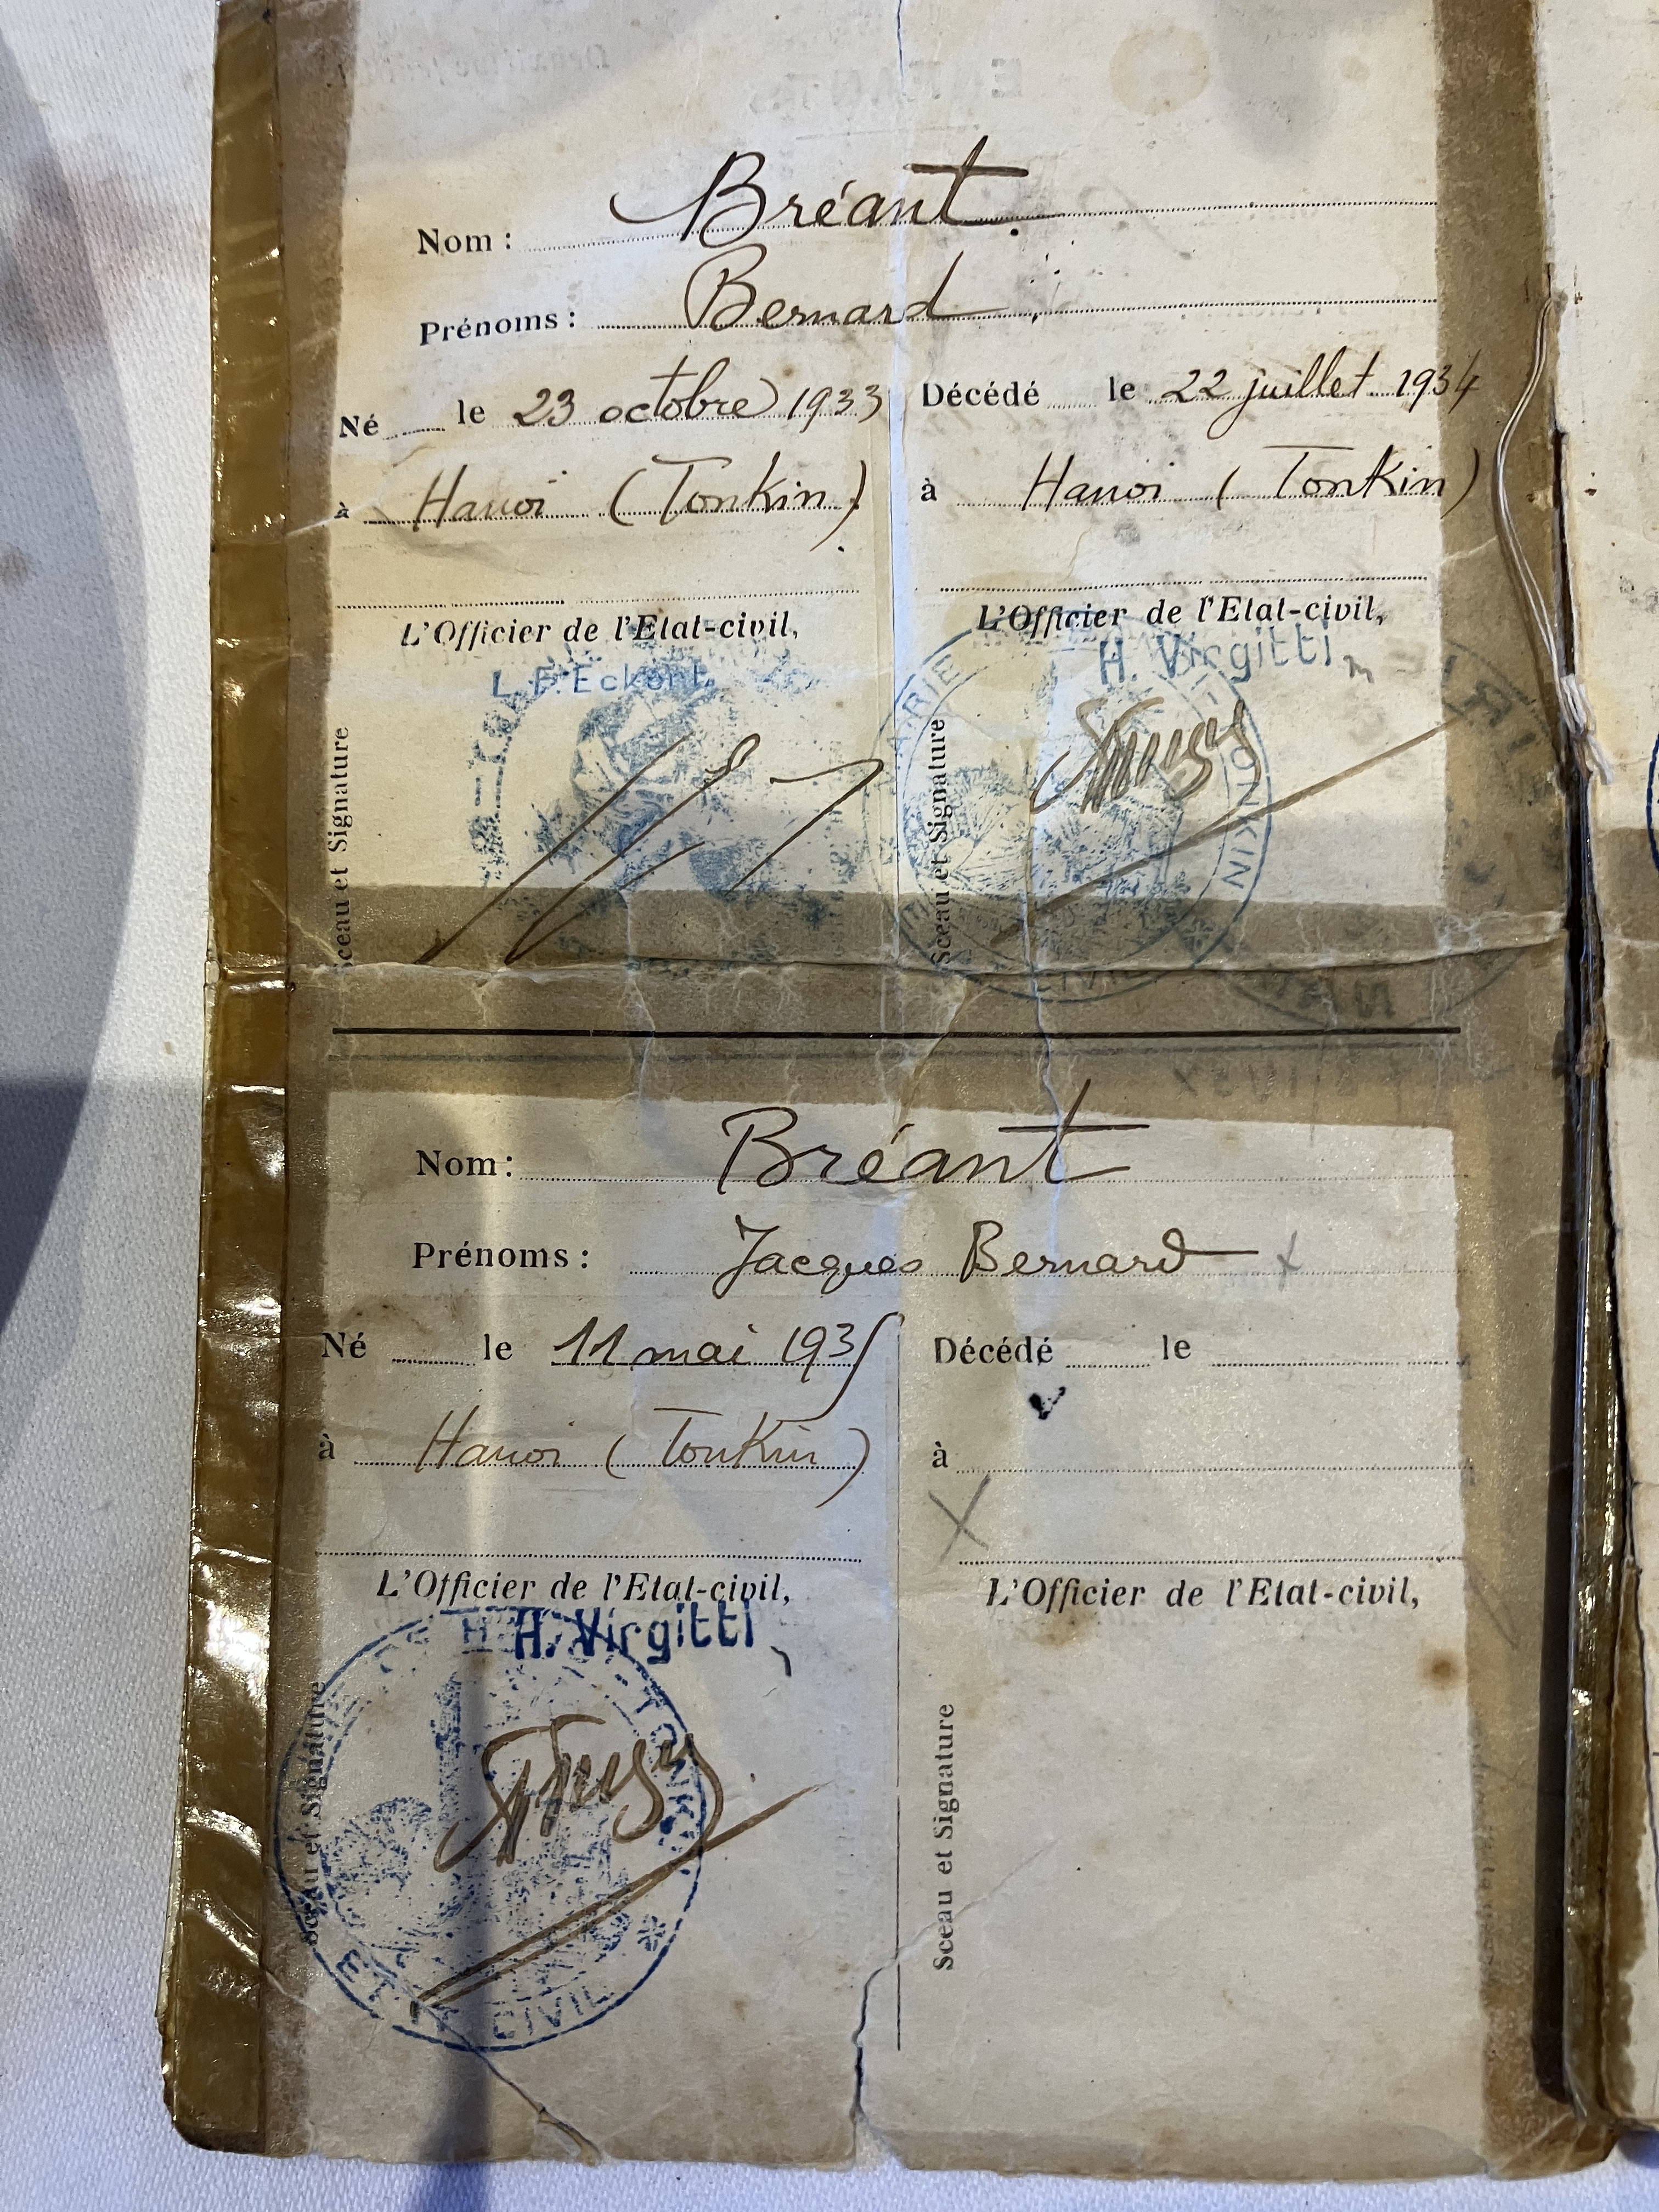 Nom : Bréant.
Prénoms : Bernard
Né le 23 octobre 1933
à Hanoi (Tonkin)
L'Officier de l'Etat-civil,
Sceau et Signature
Décédé le 22 juillet 1934
à Hanoi (Tonkin)
L'Officier de l'Etat-civil,
H. Virgitti
Sceau et Signature
TONKIN
Nom : Bréant
Prénoms : Jacques Bernard x
Né le 11 mai 1935
à Hanoi (Tonkin)
L'Officier de l'Etat-civil,
H. Virgitti
Sceau et Signature
TONKIN
ETAT CIVIL
Décédé le
à
X
L'Officier de l'Etat-civil,
Sceau et Signature